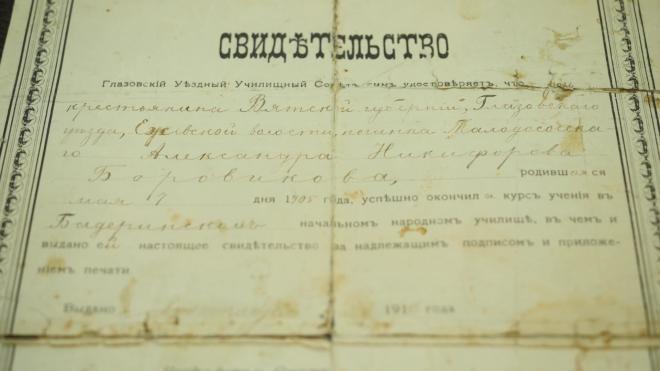 СВИДѢТЕЛЬСТВО
Глазовскій Уѣздный Училищный Совѣтъ симъ удостовѣряетъ, что дочь
крестьянина Вятской губерніи, Глазовскаго
уѣзда, волости, починка
го Александра Никифорова
Боровикова, родившаяся
мая 9 дня 1905 года, успѣшно окончил а курсъ ученія въ
начальномъ народномъ училищѣ, въ чемъ и
выдано ей настоящее свидѣтельство за надлежащимъ подписомъ и приложе-
ніемъ печати
Выдано 191 года